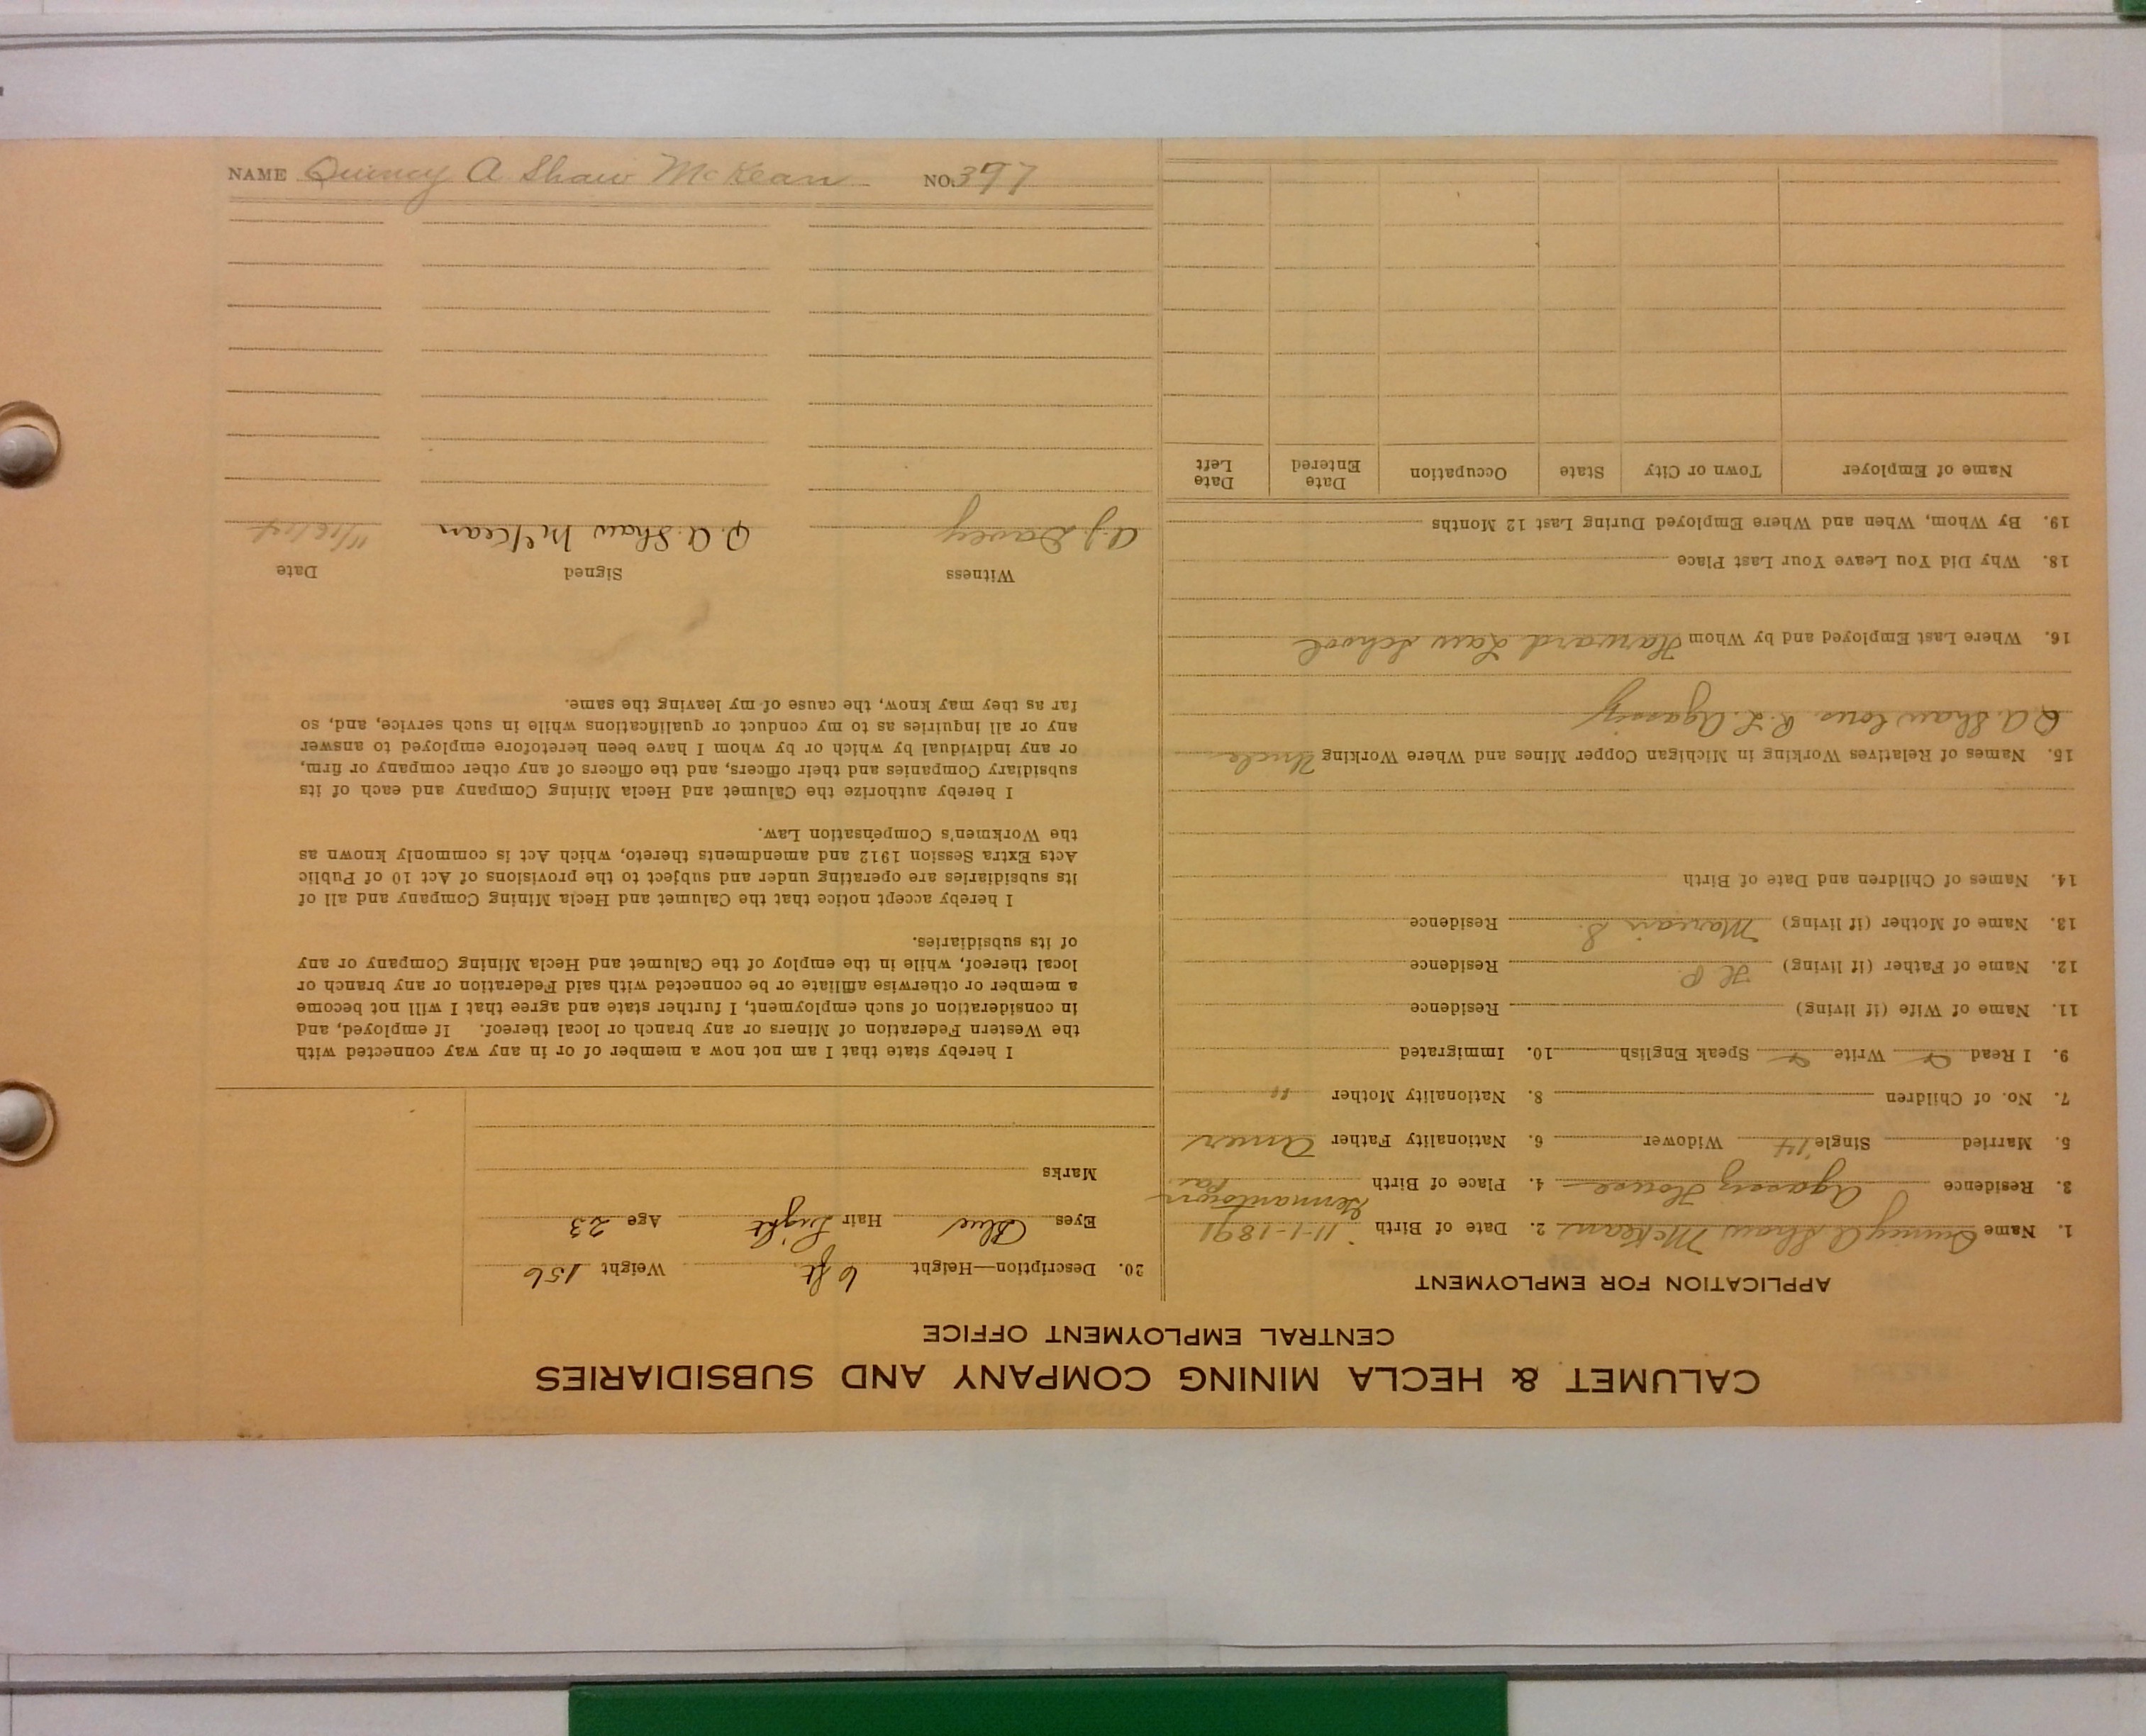 NAME Quincy A Shaw McKean NO. 397
CALUMET & HECLA MINING COMPANY AND SUBSIDIARIES
CENTRAL EMPLOYMENT OFFICE
APPLICATION FOR EMPLOYMENT
1. Name Quincy A Shaw McKean 2. Date of Birth 11-1-1891
3. Residence Agassiz House 4. Place of Birth Germantown Pa
5. Married Single Widower 6. Nationality Father Amer
7. No. of Children 8. Nationality Mother "
9. I Read Write Speak English 10. Immigrated
11. Name of Wife (if living) Residence
12. Name of Father (if living) H. P. Residence
13. Name of Mother (if living) Marian S. Residence
14. Names of Children and Date of Birth
15. Names of Relatives Working in Michigan Copper Mines and Where Working Uncle
Q A Shaw R. L. Agassiz
16. Where Last Employed and by Whom Harvard Law School
18. Why Did You Leave Your Last Place
19. By Whom, When and Where Employed During Last 12 Months
Name of Employer Town or City State Occupation Date Entered Date Left
20. Description—Height 6 ft Weight 156
Eyes Blue Hair Light Age 23
Marks
I hereby state that I am not now a member of or in any way connected with
the Western Federation of Miners or any branch or local thereof. If employed, and
in consideration of such employment, I further state and agree that I will not become
a member or otherwise affiliate or be connected with said Federation or any branch or
local thereof, while in the employ of the Calumet and Hecla Mining Company or any
of its subsidiaries.
I hereby accept notice that the Calumet and Hecla Mining Company and all of
its subsidiaries are operating under and subject to the provisions of Act 10 of Public
Acts Extra Session 1912 and amendments thereto, which Act is commonly known as
the Workmen's Compensation Law.
I hereby authorize the Calumet and Hecla Mining Company and each of its
subsidiary Companies and their officers, and the officers of any other company or firm,
or any individual by which or by whom I have been heretofore employed to answer
any or all inquiries as to my conduct or qualifications while in such service, and, so
far as they may know, the cause of my leaving the same.
Witness Signed Date
A J Davey Q. A. Shaw McKean